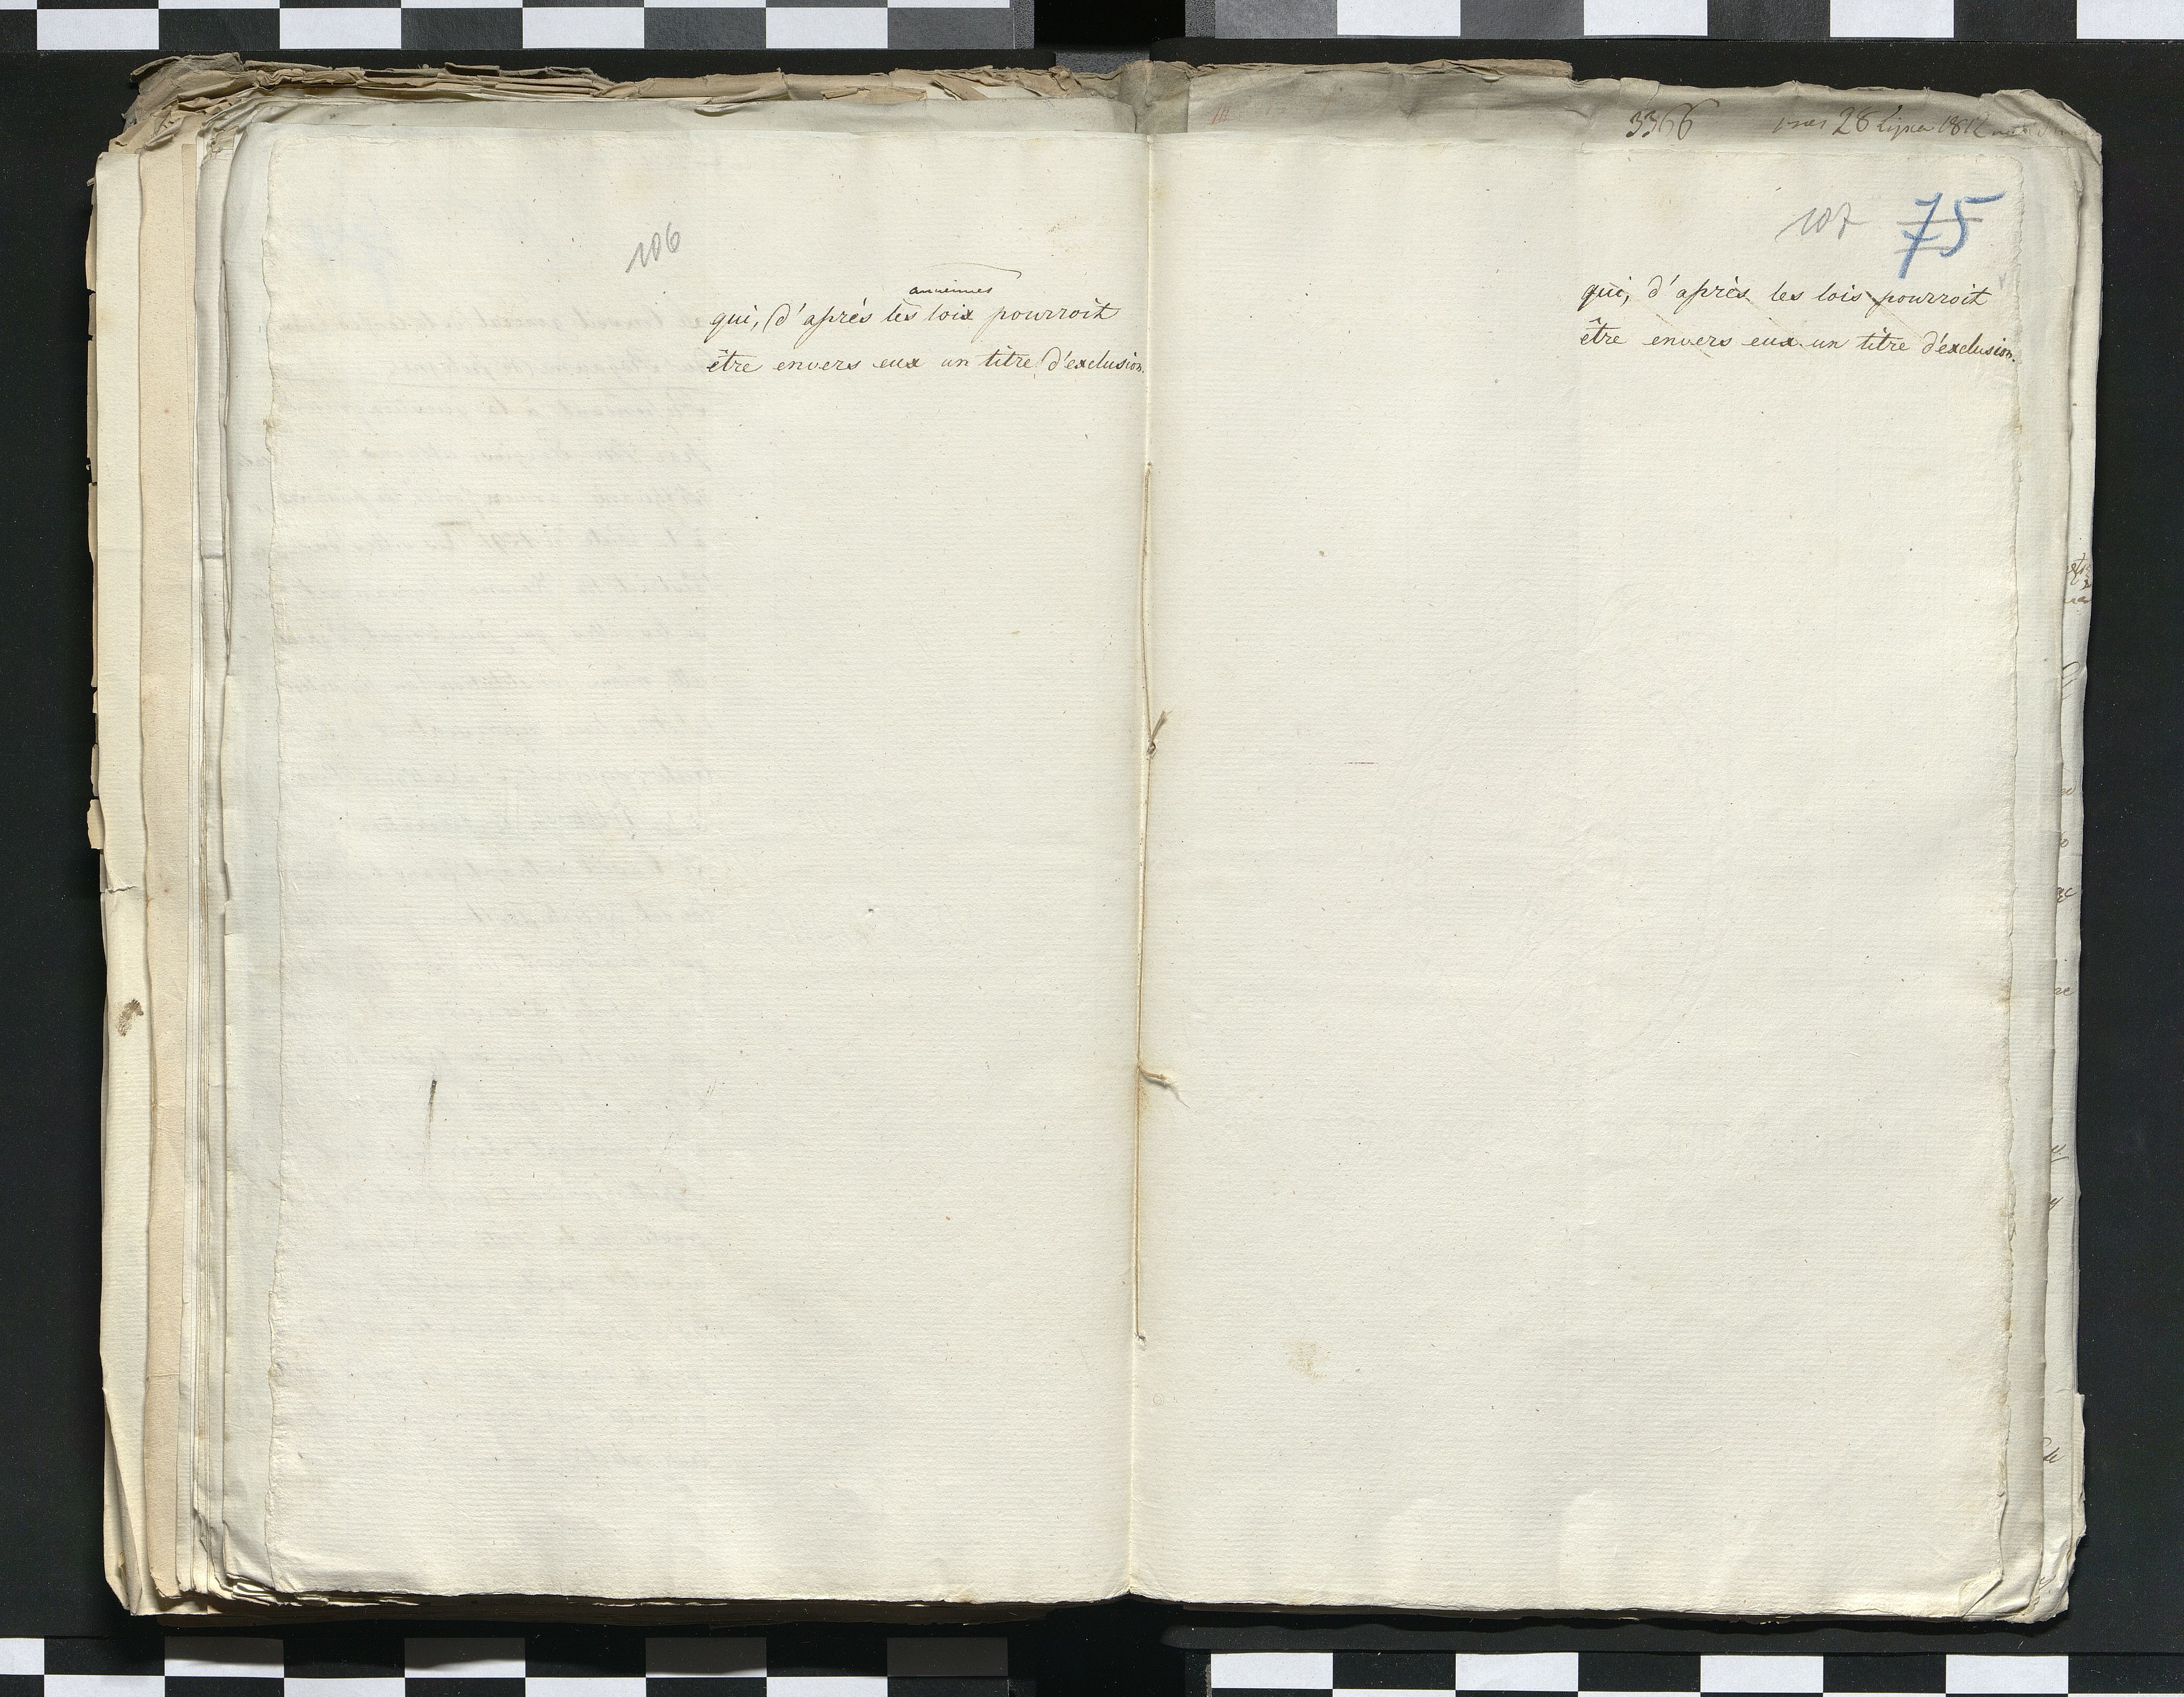 106
anciennes
qui, d'après les loix pourroit
être envers eux un titre d'exclusion.
3366 28 lipca 1812
107 75
qui, d'après les lois pourroit
être envers eux un titre d'exclusion.